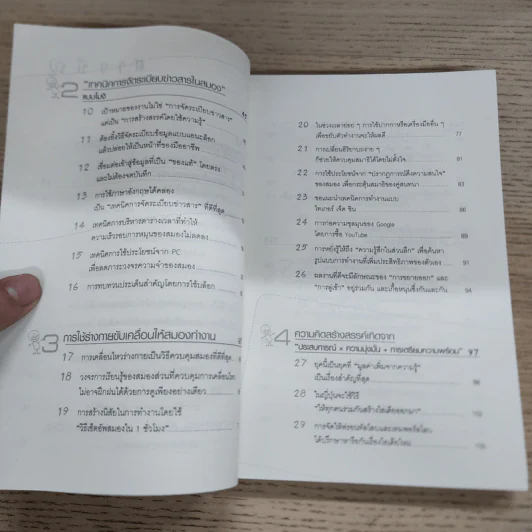 2 "เทคนิคการจัดระเบียบข่าวสารในสมอง"
แบบโมงิ
10 เป้าหมายของงานไม่ใช่ "การจัดระเบียบข่าวสาร"
แต่เป็น "การสร้างสรรค์โดยใช้ความรู้"
11 ต้องยิ่งใช้จัดระเบียบข้อมูลแบบแอนะล็อก
แล้วปล่อยให้เป็นหน้าที่ของมืออาชีพ
12 เชื่อมต่อเข้าสู่ข้อมูลที่เป็น "ของแท้" โดยตรง
และไม่ต้องจดบันทึก
13 การใช้ภาษาอังกฤษได้คล่อง
เป็น "เทคนิคการจัดระเบียบข่าวสาร" ที่ดีที่สุด
14 เทคนิคการบริหารตารางเวลาที่ทำให้
ความเร็วรอบการหมุนของสมองไม่ลดลง
15 เทคนิคการใช้ประโยชน์จาก PC
เพื่อลดภาระวงจรความจำของสมอง
16 การทบทวนประเด็นสำคัญโดยการใช้บล็อก
3 การใช้ร่างกายขับเคลื่อนให้สมองทำงาน
17 การเคลื่อนไหวร่างกายเป็นวิธีควบคุมสมองที่ดีที่สุด
18 วงจรการเรียนรู้ของสมองส่วนที่ควบคุมการเคลื่อนไหว
ไม่อาจฝึกฝนได้ด้วยการดูเพียงอย่างเดียว
19 การสร้างนิสัยในการทำงานโดยใช้
"วิธีเซ็ตอัพสมองใน 1 ชั่วโมง"
20 ในช่วงเวลาย่อย ๆ การใช้ปากกาหรือเครื่องมืออื่น ๆ
เพื่อขยับตัวทำงานจะให้ผลดี 77
21 การเปลี่ยนอิริยาบถง่าย ๆ
ก็ช่วยให้ควบคุมสมาธิได้โดยไม่ตั้งใจ 81
22 การใช้ประโยชน์จาก "ปรากฏการณ์ดึงความสนใจ"
ของสมอง เพื่อกระตุ้นสมาธิของคู่สนทนา 83
23 ขอแนะนำเทคนิคการทำงานแบบ
ไทเกอร์ เจ็ต ซิน 86
24 การก่อความชุลมุนของ Google
โดยการซื้อ YouTube 89
25 การหยั่งรู้ให้ถึง "ความรู้สึกในส่วนลึก" เพื่อค้นหา
รูปแบบการทำงานที่เพิ่มประสิทธิภาพของตัวเอง 91
26 ผลงานที่ดีจะมีลักษณะของ "การขยายออก" และ
"การดูเข้า" อยู่รวมกัน และเกื้อหนุนซึ่งกันและกัน 94
4 ความคิดสร้างสรรค์เกิดจาก
"ประสบการณ์ × ความมุ่งมั่น + การเตรียมความพร้อม" 97
27 ยุคนี้เป็นยุคที่ "มูลค่าเพิ่มจากความรู้"
เป็นเรื่องสำคัญที่สุด 98
28 ในญี่ปุ่นจะใช้วิธี
"ให้ทุกคนร่วมกันสร้างไอเดียออกมา"
29
ได้ปรึกษาหารือกันเรื่องไอเดียใหม่